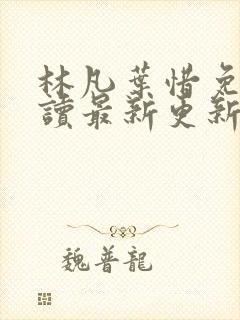 林凡葉惜免
讀最新更新
魏普龍